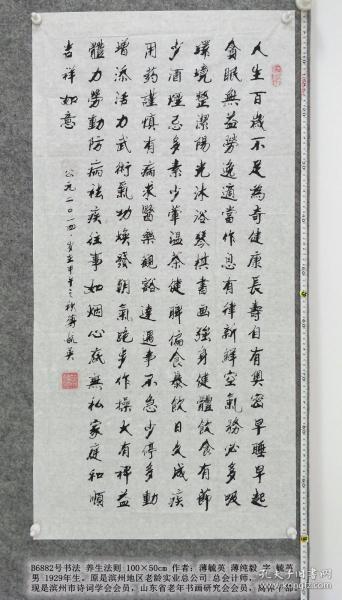 人生百歲不足為奇健康長壽自有奧密早睡早起
貪眠無益勞逸適當作息有律新鮮空氣務必多吸
環境整潔陽光沐浴琴棋書画強身健體飲食有節
少酒煙忌多素少葷溫茶健脾偏食暴飲日久成疾
用药謹慎有病求醫樂觀豁達遇事不急少停多動
增添活力武術氣功煥發朝氣跑步作操大有裨益
體力勞動防病祛疾往事如烟心底無私家庭和順
吉祥如意
公元二〇一四年
B6882号书法 养生法则 100×50cm 作者：薄毓英 薄纯毅 字 毓英
男 1929年生。原是滨州地区老龄实业总公司 总会计师，
现是滨州市诗词学会会员，山东省老年书画研究会会员，离休干部